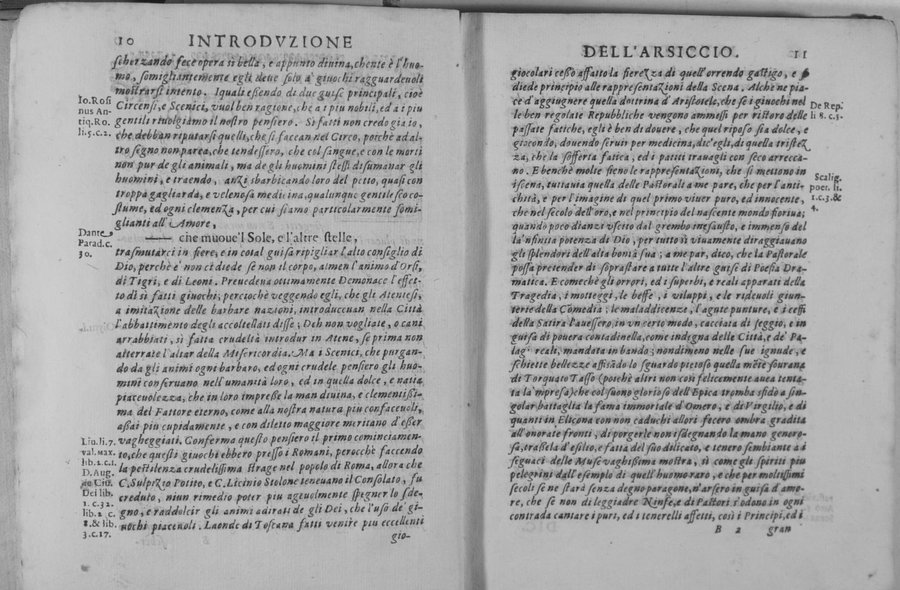 10 INTRODVZIONE
scherzando fece opera sì bella, e appunto diuina, chente è l'huo-
mo, somigliantemente egli deue solo a' giuochi ragguardeuoli
mostrarsi intento. I quali essendo di due guise principali, cioè
Io. Rosi
Circensi, e Scenici, vuol ben ragione, che a i piu nobili, ed a i piu
nus An-
gentili riuolgiamo il nostro pensiero. Sì fatti non credo gia io,
tiq. Ro.
li. 5. c. 2.
che debban reputarsi quelli, che si faccan nel Circo, poichè ad al-
tro segno non parea, che tendessero, che col sangue, e con le morti
non pur de gli animali, ma de gli huomini stessi disumanar gli
huomini, e traendo, anzi sbarbicando loro del petto, quasi con
troppa gagliarda, e velenosa medicina, qualunque gentilesco co-
stume, ed ogni clemenza, per cui siamo particolarmente somi-
glianti all'Amore,
Dante
Parad. c.
30.
che muoue'l Sole, e l'altre stelle,
trasmutarci in fiere, e in cotal guisa ripigliar l'alto consiglio di
Dio, perchè è' non ci diede se non il corpo, almen l'animo d'Orsi,
di Tigri, e di Leoni. Preuedeua ottimamente Demonace l'effet-
to di sì fatti giuochi; percioche veggendo egli, che gli Ateniesi,
a imitazione delle barbare nazioni, introduceuan nella Città
l'abbattimento degli accoltellati disse; Deh non vogliate, o cani
arrabbiati, sì fatta crudeltà introdur in Atene, se prima non
alterrate l'altar della Misericordia. Ma i Scenici, che purgan-
do da gli animi ogni barbaro, ed ogni crudele pensiero gli huo-
mini conseruano nell'umanità loro, ed in quella dolce, e natta
piaceuolezza, che in loro impresse la man diuina, e clementißi-
ma del Fattore eterno, come alla nostra natura piu confaceuoli,
aßai piu cupidamente, e con diletto maggiore meritano d'eßer
Liu. li. 7.
vagheggiati. Conferma questo pensiero il primo cominciamen-
val. max.
lib. 2. c. 1.
to, che questi giuochi ebbero presso i Romani, perocchè faccendo
D. Aug.
la pestilenza crudelissima strage nel popolo di Roma, allora che
de Ciu.
C. Sulpizio Potito, e C. Licinio Stolone teneuano il Consolato, fu
Dei lib.
creduto, niun rimedio poter piu ageuolmente spegner lo sde-
1. c. 32.
lib. 2. c.
gno, e raddolcir gli animi adirati de gli Dei, che l'uso de' giu-
8. & lib.
3. c. 17.
nochi piaceuoli. Laonde di Toscana fatti venire piu eccellenti
gio-
DELL'ARSICCIO. 11
giocolari ceßò affatto la fierezza di quell'orrendo gastigo, e si
diede principio alle rappresentazioni della Scena. Alchè ne pia-
ce d'aggiugnere quella dottrina d'Aristotele, che se i giuochi nel
De Rep.
li. 8. c. 3.
le ben regolate Repubbliche vengono ammessi per ristoro delle
passate fatiche, egli è ben di douere, che quel riposo sia dolce, e
giocondo, douendo seruir per medicina, dic'egli, di quella tristez
za, che la sofferta fatica, ed i patiti trauagli con seco arrecca-
no. E benchè molte sieno le rappresentazioni, che si mettono in
Scalig.
poet. li.
1. c. 3. &
4.
iscena, tuttauia quella delle Pastorali a me pare, che per l'anti-
chità, e per l'imagine di quel primo viuer puro, ed innocente,
che nel secolo dell'oro, e nel principio del nascente mondo fioriua;
quando poco dianzi vscito dal grembo inesausto, e immenso del
la'nfinita potenza di Dio, per tutto sì viuamente diraggiauano
gli splendori dell'alta bontà sua; a me par, dico, che la Pastorale
possa pretender di soprastare a tutte l'altre guise di Poesia Dra-
matica. E comechè gli orrori, ed i superbi, e reali apparati della
Tragedia, i motteggi, le beffe, i viluppi, e le rideuoli giun-
terie della Comedia; le maladdicenze, l'agute punture, e i ceffi
della Satira l'auessero, in vn certo modo, cacciata di seggio, e in
guisa di pouera contadinella, come indegna delle Città, e de' Pa-
lagi reali, mandata in bando; nondimeno nelle sue ignude, e
schiette bellezze affisādo lo sguardo pietoso quella mēte sourana
di Torquato Tasso (poichè altri non così felicemente auea tenta-
ta la'mpresa) che col suono glorioso dell'Epica tromba sfidò a sin-
golar battaglia la fama immortale d'Omero, e di Virgilio, e di
quanti in Elicona con non caduchi allori fecero ombra gradita
all'onorate fronti, di porgerle non isdegnando la mano genero-
sa, trasla d'esilio, e fatta del suo dilicato, e tenero sembiante a i
seguaci delle Muse vaghissima mostra, sì come gli spiriti piu
pelegrini dall'esempio di quell'huomo raro, e che per moltissimi
secoli se ne starà senza degno paragone, n'arsero in guisa d'amo-
re, che se non di leggiadre Ninfe, e di Pastori s'odono in ogni
contrada cantare i puri, ed i tenerelli affetti, così i Principi, ed i
B 2 gran